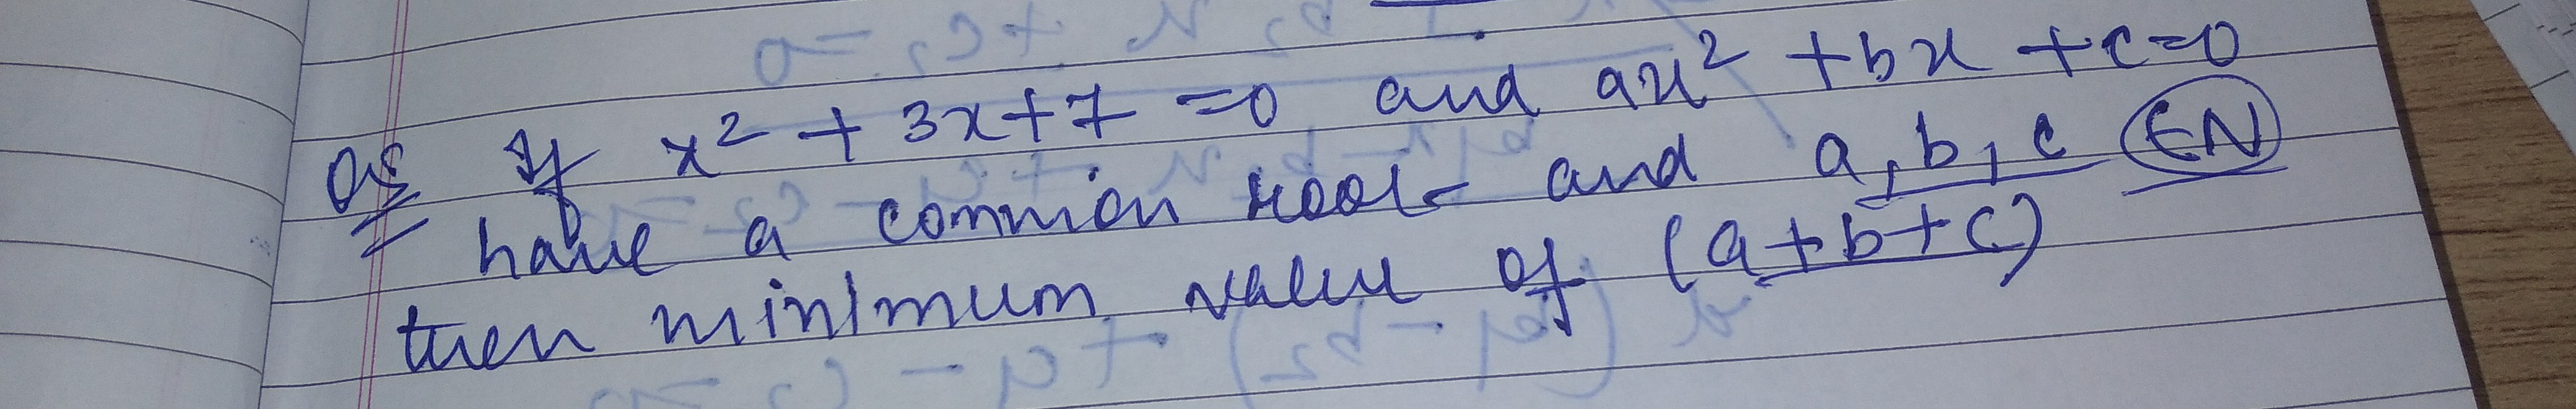 Q5 If x² + 3x + 7 = 0 and ax² + bx + c = 0
have a common root and a, b, c ∈ N
then minimum value of (a + b + c)